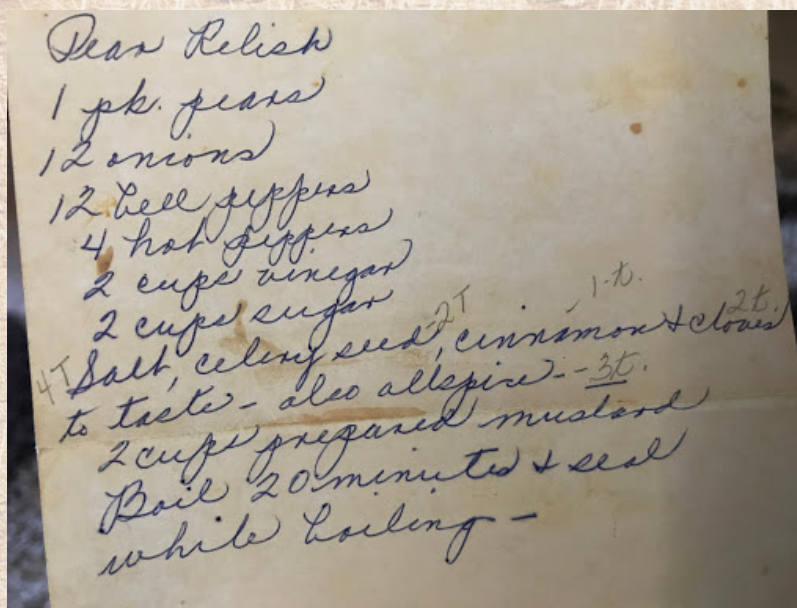 Pear Relish
1 pk. pears
12 onions
12 bell peppers
4 hot peppers
2 cups vinegar
2 cups sugar
4T Salt, celery seed -2T, cinnamon -1-t. & cloves 2t.
to taste - also allspice - -3t.
2 cups prepared mustard
Boil 20 minutes & seal
while boiling -